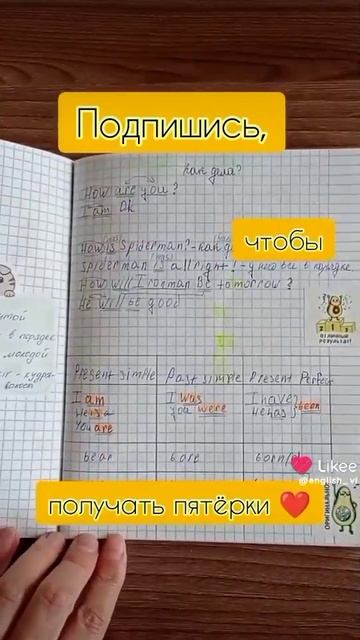 Подпишись,
Как дела?
How are you?
I am Ok
How is Spiderman? - как
чтобы
Spiderman is all right! - у него все в порядке
How will Ironman be tomorrow?
He will be good
в порядке
молодой
ОТЛИЧНЫЙ
РЕЗУЛЬТАТ!
Present simple Past simple Present Perfect
I am I was I have been
He is You were He has
You are
bear bore born
Likee
@english_vi
получать пятёрки ❤️
ОРИГИНАЛЬНО